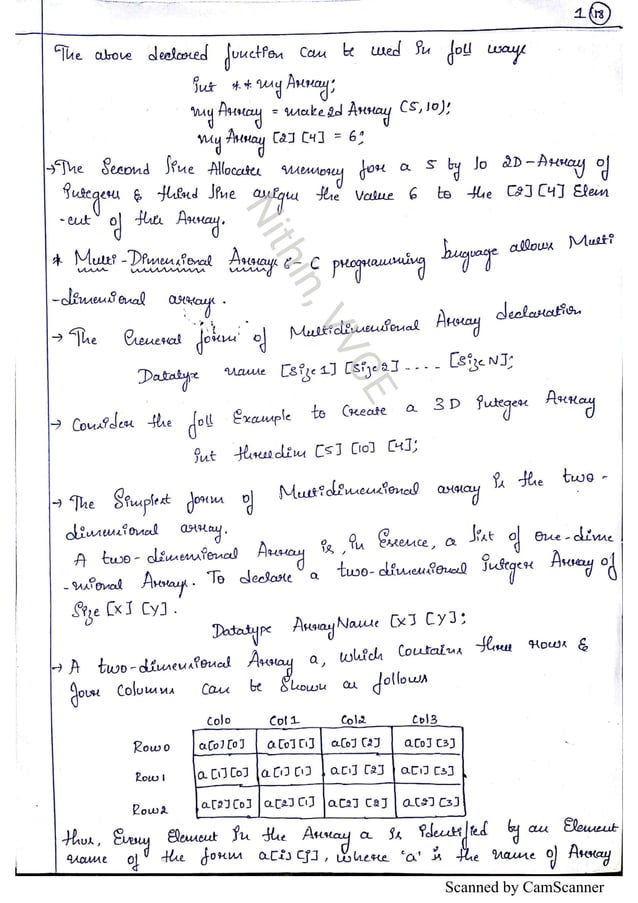 1 18
The above declared function can be used in foll ways
int **myArray;
myArray = make2dArray (5,10);
myArray [2] [4] = 6;
→The Second line Allocates memory for a 5 by 10 2D-Array of
Integers & third line assigns the value 6 to the [2] [4] Elem
-ent of the Array.
* Multi-Dimensional Arrays :- C programming language allows Multi
-dimensional arrays.
→ The General form of Multidimensional Array declaration
Datatype name [Size1] [Size2] .... [SizeN];
→ Consider the foll Example to Create a 3D integer Array
int threedim [5] [10] [4];
→ The Simplest form of Multidimensional array is the two-
dimensional array.
A two-dimensional Array is, in Essence, a list of one-dime
-nsional Arrays. To declare a two-dimensional integer Array of
Size [x] [y].
Datatype ArrayName [x] [y];
→ A two-dimensional Array a, which contains three rows &
four columns can be shown as follows
Col0 Col1 Col2 Col3
Row0 a[0][0] a[0][1] a[0][2] a[0][3]
Row1 a[1][0] a[1][1] a[1][2] a[1][3]
Row2 a[2][0] a[2][1] a[2][2] a[2][3]
thus, Every Element in the Array a is identified by an Element
name of the form a[i][j], where 'a' is the name of Array
Nithin, VVCE
Scanned by CamScanner